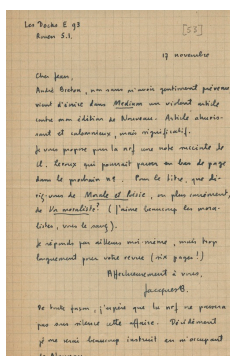 Les Docks E 93
Rouen S.I.
[53]
17 novembre
Cher Jean,
André Breton, non sans m'avoir gentiment prévenu,
vient d'écrire dans Medium un violent article
contre mon édition de Nouveau. Article ahuris-
sant et calomnieux, mais significatif.
Je vous propose pour la nrf une note succincte de
il. Leroux qui pourrait passer en bas de page
dans le prochain n°. Pour le titre, que di-
riez-vous de Morale et Poésie, ou plus carrément,
de Un moraliste? (j'aime beaucoup les mora-
listes, vous le savez).
Je réponds par ailleurs moi-même, mais trop
longuement pour votre revue (six pages!)
Affectueusement à vous,
Jacques B.
De toute façon, j'espère que la nrf ne passera
pas sous silence cette affaire. Décidément
je me serai beaucoup instruit en m'occupant
de Nouveau.